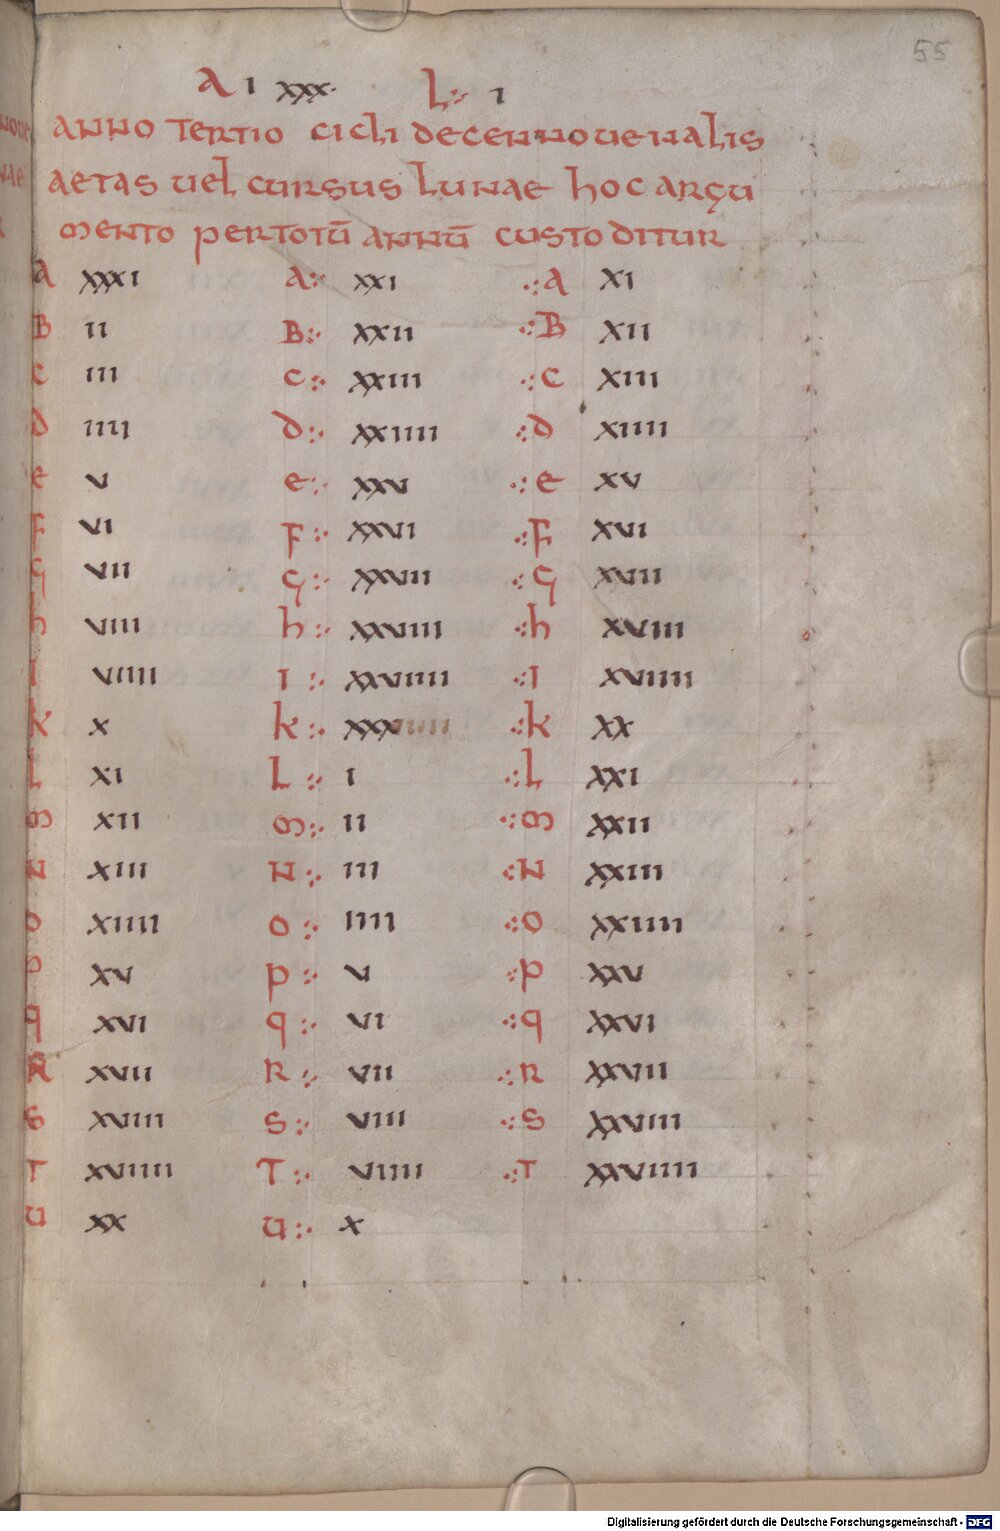 55
A I XXX. L:· I
ANNO TERTIO CICLI DECENNOUENALIS
AETAS UEL CURSUS LUNAE HOC ARGU
MENTO PER TOTŪ ANNŪ CUSTODITUR
A XXXI A:· XXI ·:A XI
B II B:· XXII ·:B XII
C III C:· XXIII ·:C XIII
D IIII D:· XXIIII ·:D XIIII
E V E:· XXV ·:E XV
F VI F:· XXVI ·:F XVI
G VII G:· XXVII ·:G XVII
h VIII h:· XXVIII ·:h XVIII
I VIIII I:· XXVIIII ·:I XVIIII
K X K:· XXX ·:K XX
L XI L:· I ·:L XXI
M XII M:· II ·:M XXII
N XIII N:· III ·:N XXIII
O XIIII O:· IIII ·:O XXIIII
P XV P:· V ·:P XXV
q XVI q:· VI ·:q XXVI
R XVII R:· VII ·:R XXVII
S XVIII S:· VIII ·:S XXVIII
T XVIIII T:· VIIII ·:T XXVIIII
U XX U:· X
Digitalisierung gefördert durch die Deutsche Forschungsgemeinschaft - DFG